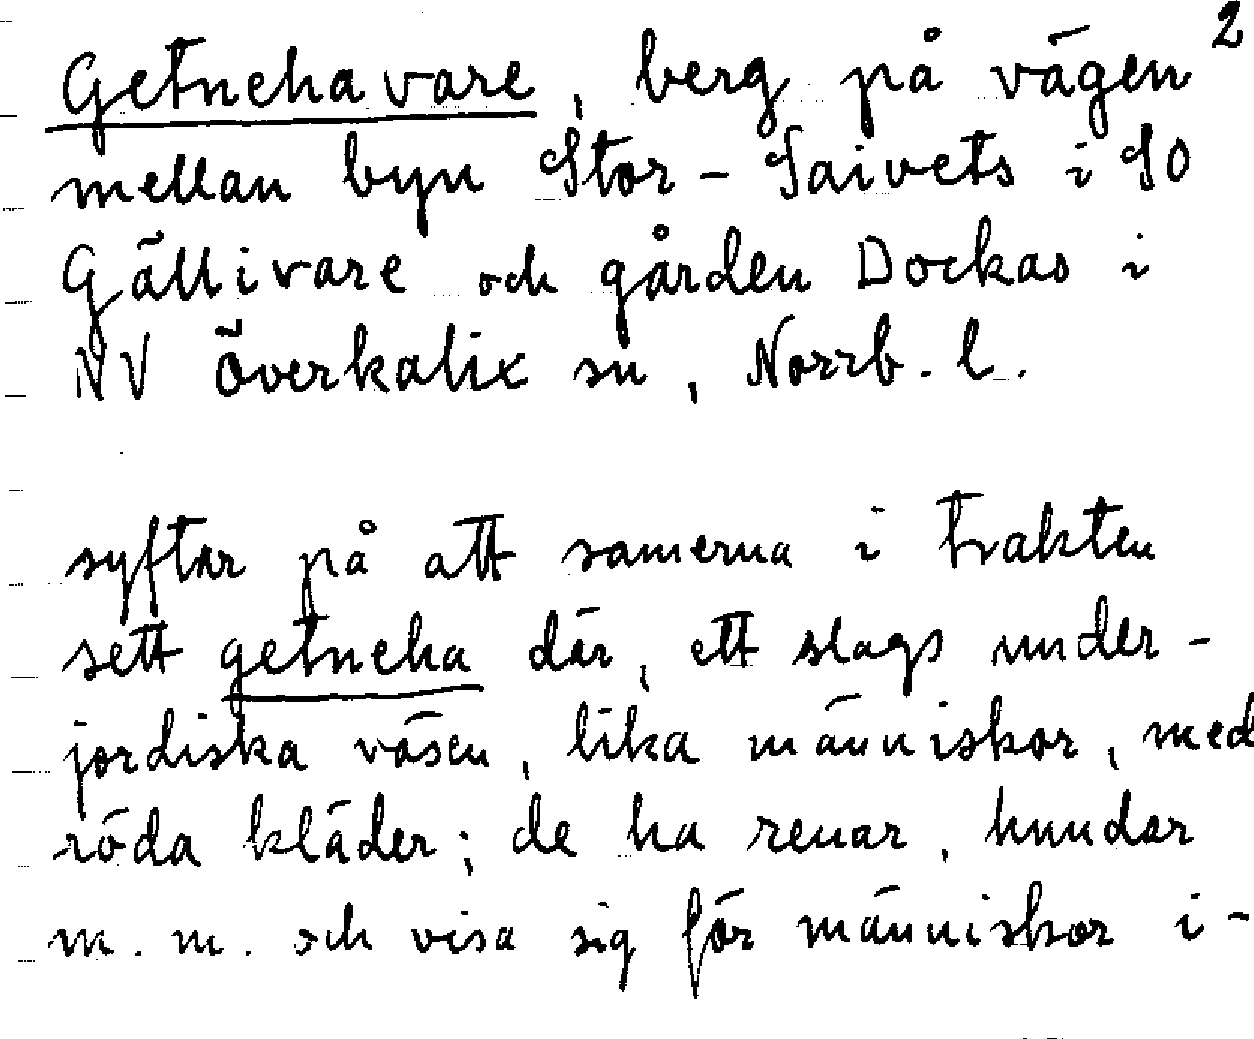 2
Getnehavare, berg på vägen
mellan byn Stor-Saivets i SO
Gällivare och gården Dockas i
NV Överkalix sn, Norrb. l.
syftar på att samerna i trakten
sett getneha där, ett slags under-
jordiska väsen, lika människor, med
röda kläder; de ha renar, hundar
m. m. och visa sig för människor i-